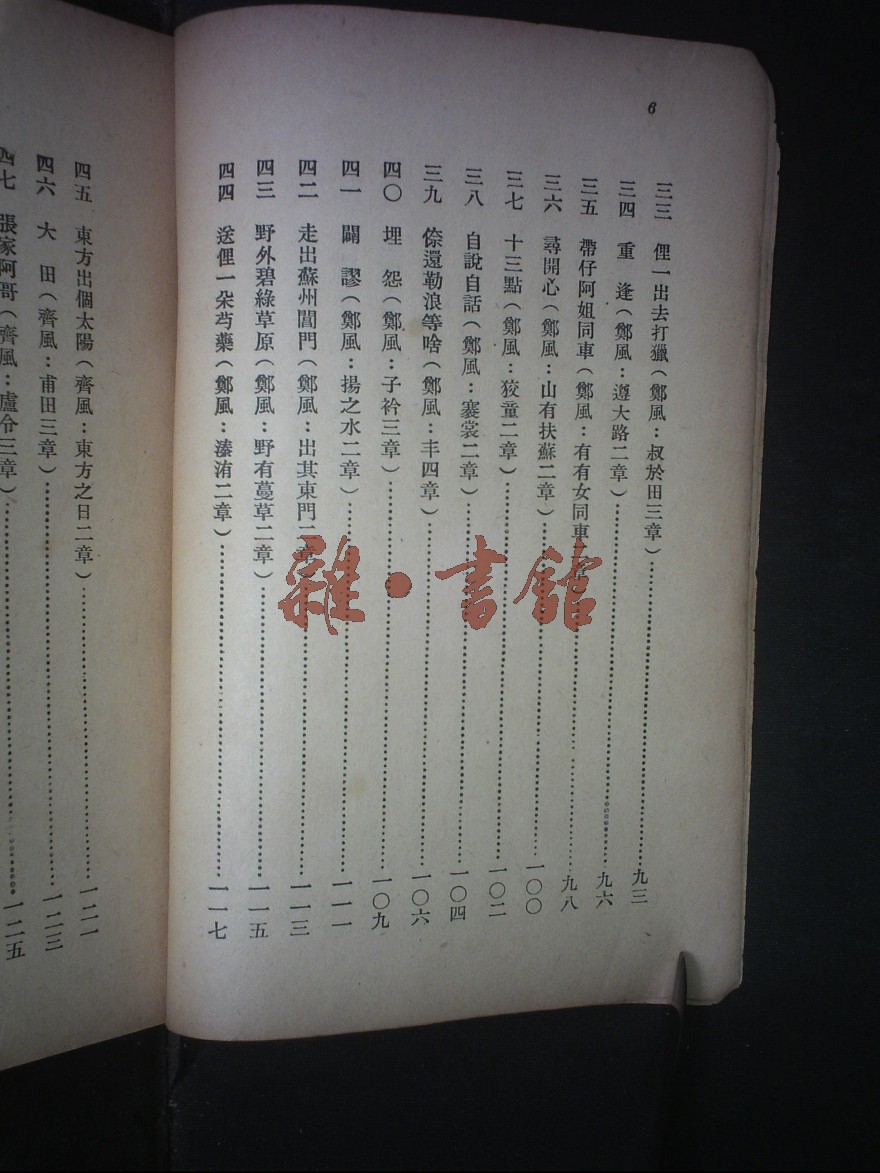 6
三三　俚一出去打獵（鄭風：叔於田三章）……九三
三四　重　逢（鄭風：遵大路二章）……九六
三五　帶仔阿姐同車（鄭風：有有女同車　章）……九八
三六　尋開心（鄭風：山有扶蘇二章）……一〇〇
三七　十三點（鄭風：狡童二章）……一〇二
三八　自說自話（鄭風：褰裳二章）……一〇四
三九　倷還勒浪等啥（鄭風：丰四章）……一〇六
四〇　埋　怨（鄭風：子衿三章）……一〇九
四一　闢　謬（鄭風：揚之水二章）……一一一
四二　走出蘇州閶門（鄭風：出其東門二章）……一一三
四三　野外碧綠草原（鄭風：野有蔓草二章）……一一五
四四　送俚一朵芍藥（鄭風：溱洧二章）……一一七
四五　東方出個太陽（齊風：東方之日二章）……一二一
四六　大　田（齊風：甫田三章）……一二三
四七　張家阿哥（齊風：盧令三章）……一二五
雜·書館